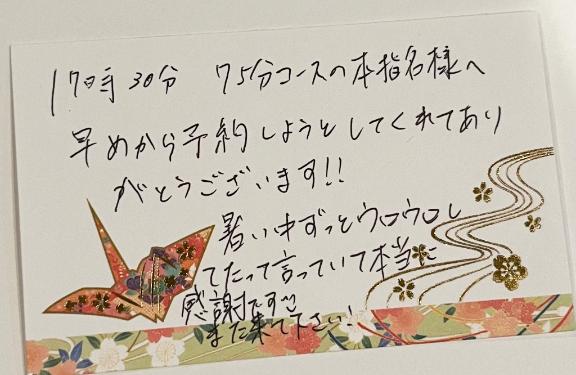 17時30分 75分コースの本指名様へ
早めから予約しようとしてくれてあり
がとうございます!!
暑い中ずっとウロウロし
てたって言っていて本当に
感謝です
また来て下さい!